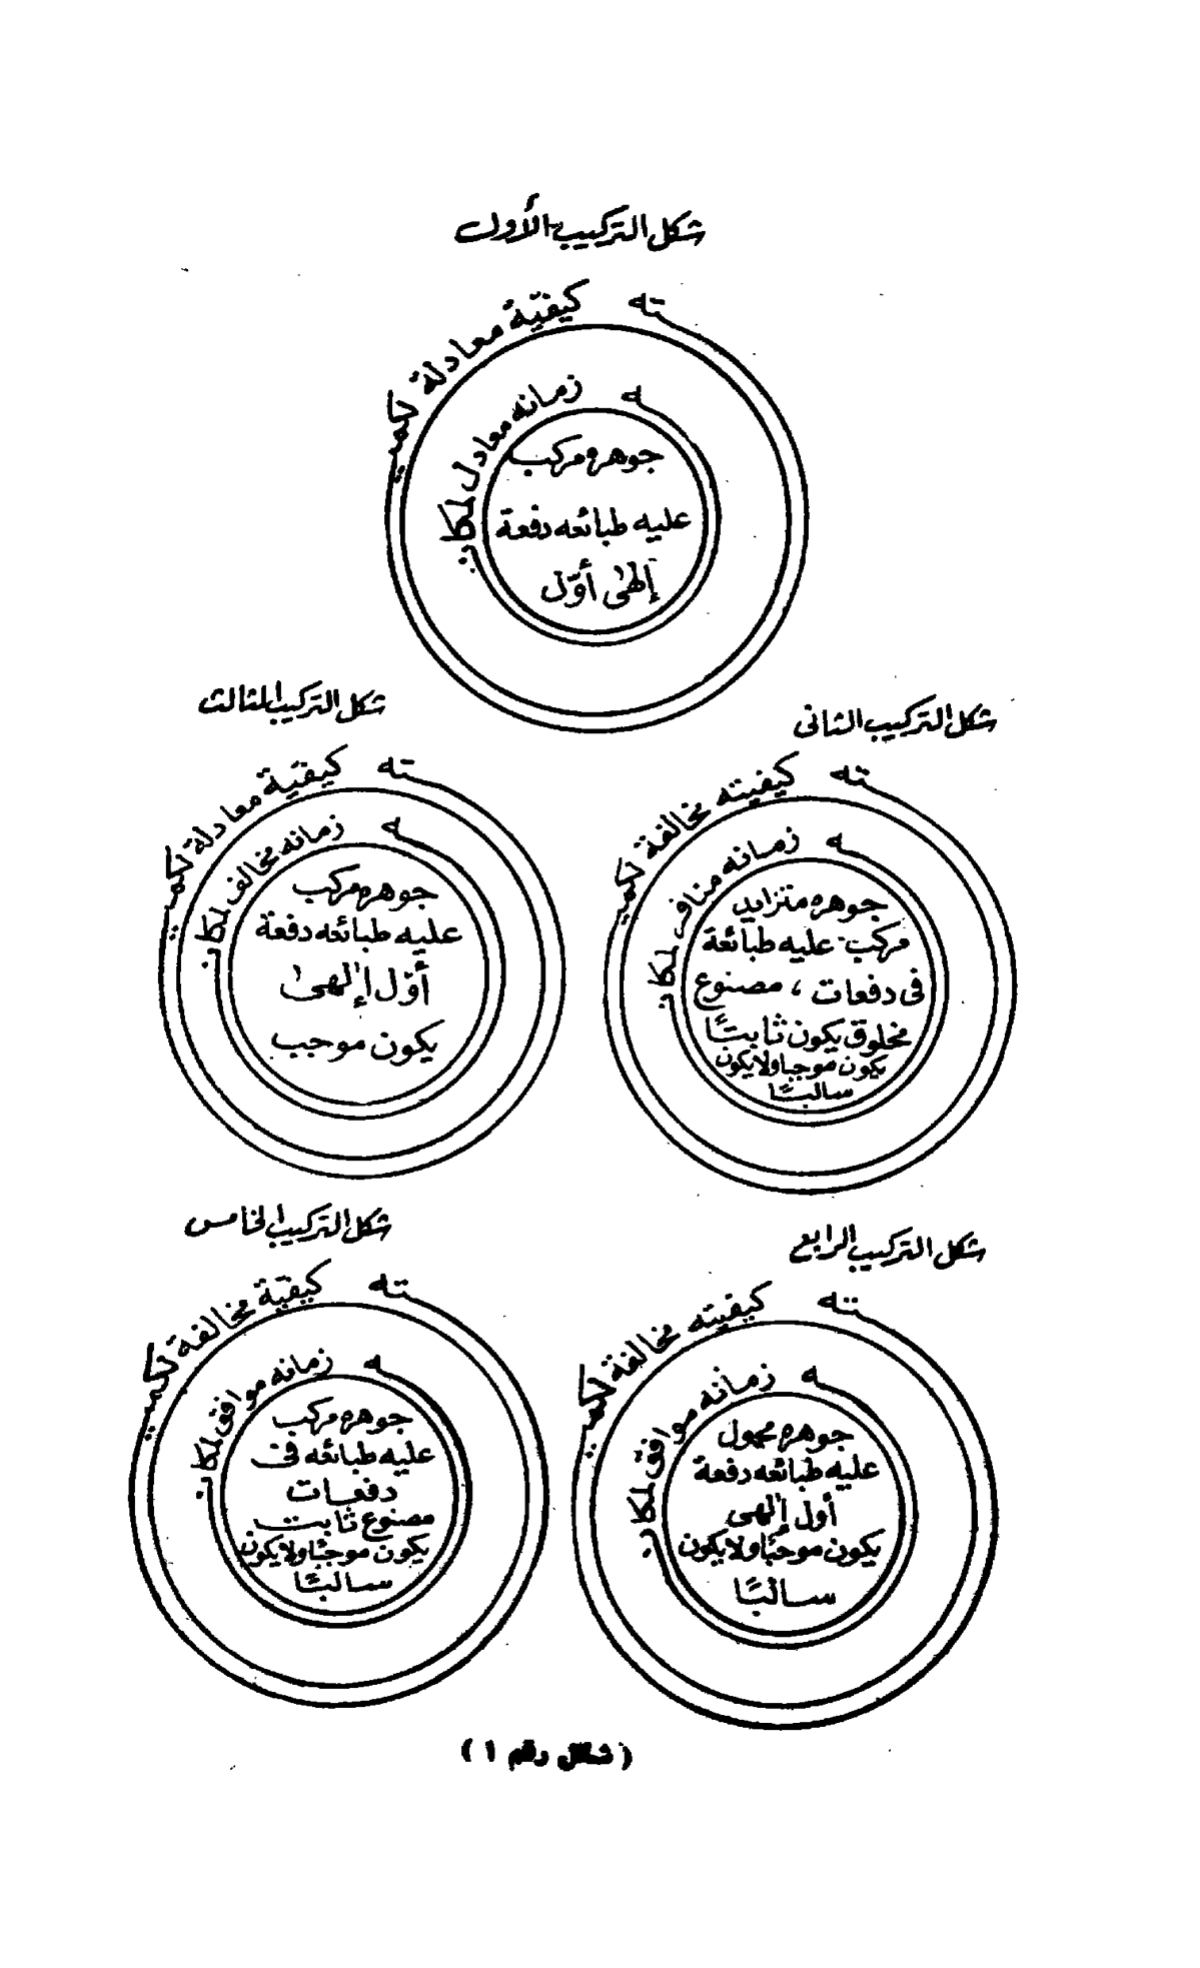 شكل التركيب الأول
كيفية معادلة لكميته
زمانه معادل لمكانه
جوهره مركب
عليه طبائعه دفعة
إلهى أوّل
شكل التركيب الثانى
كيفيته مخالفة لكميته
زمانه مناف لمكانه
جوهره متزايد
مركب عليه طبائعة
فى دفعات ، مصنوع
مخلوق يكون ثابتًا
يكون موجبا ولا يكون
سالبًا
شكل التركيب الثالث
كيفية معادلة لكميته
زمانه مخالف لمكانه
جوهره مركب
عليه طبائعه دفعة
أوّل إلهى
يكون موجب
شكل التركيب الرابع
كيفيته مخالفة لكميته
زمانه موافق لمكانه
جوهره محمول
عليه طبائعه دفعة
أول إلهى
يكون موجبًا ولا يكون
سالبًا
شكل التركيب الخامس
كيفية مخالفة لكميته
زمانه موافق لمكانه
جوهره مركب
عليه طبائعه فى
دفعات
مصنوع ثابت
يكون موجبًا ولا يكون
سالبًا
( شكل رقم ١ )